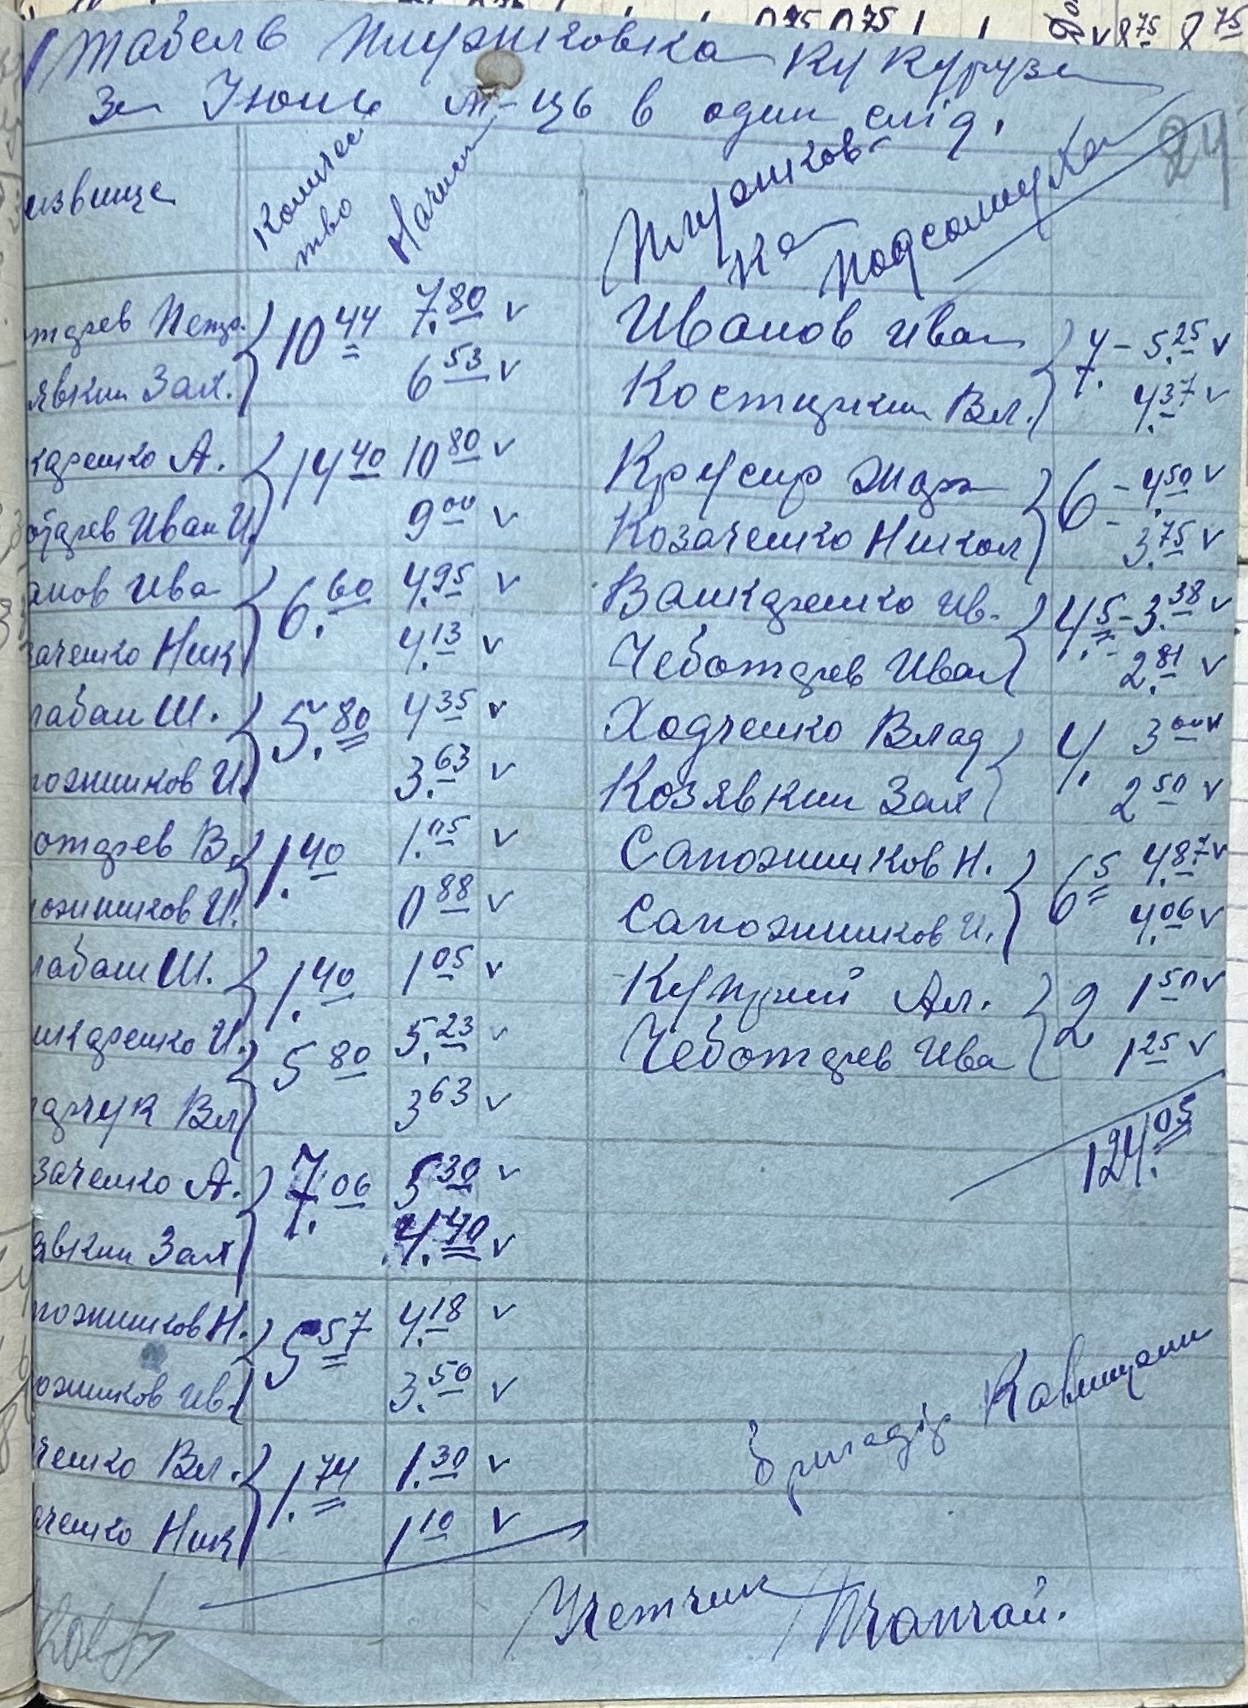 Табель Плужковка Кукурузи
За Июнь м-ць в один слід.
24
ізвище
Количес
тво
Начис
отарев Петр. 10 44 7.80 v
явкин Зах. 6 53 v
каренко А. 14 40 10 80 v
отарев Иван И. 9 00 v
анов Ива 6.60 4.95 v
заченко Ник 4.13 v
лабан Ш. 5.80 4 35 v
пожников И. 3.63 v
отарев В. 1.40 1.05 v
ожников И. 0 88 v
лабан Ш. 1.40 1 05 v
шкаренко И. 5 80 5.23 v
арчук Вл 3 63 v
заченко А. 7.06 5 30 v
явкин Зах 4.40 v
пожников Н. 5 57 4.18 v
ожников Ив. 3.50 v
ченко Вл. 1.74 1.30 v
аченко Ник 1 10 v
Плужков-
ка Подсолнуха
Иванов Иван 7 - 5.25 v
Костицкин Вл. 4.37 v
Краусир Жорж 6 - 4.50 v
Козаченко Никол 3.75 v
Вашкаренко Ив. 4.5 - 3.38 v
Чеботарев Иван 2.81 v
Ходченко Влад 4. 3 00 v
Козявкин Зах 2 50 v
Сапожников Н. 6 5 4.87 v
Сапожников И. 4.06 v
Куприй Ал. 2 1 50 v
Чеботарев Ива 1 25 v
124.05
Бригадір
Учетчик